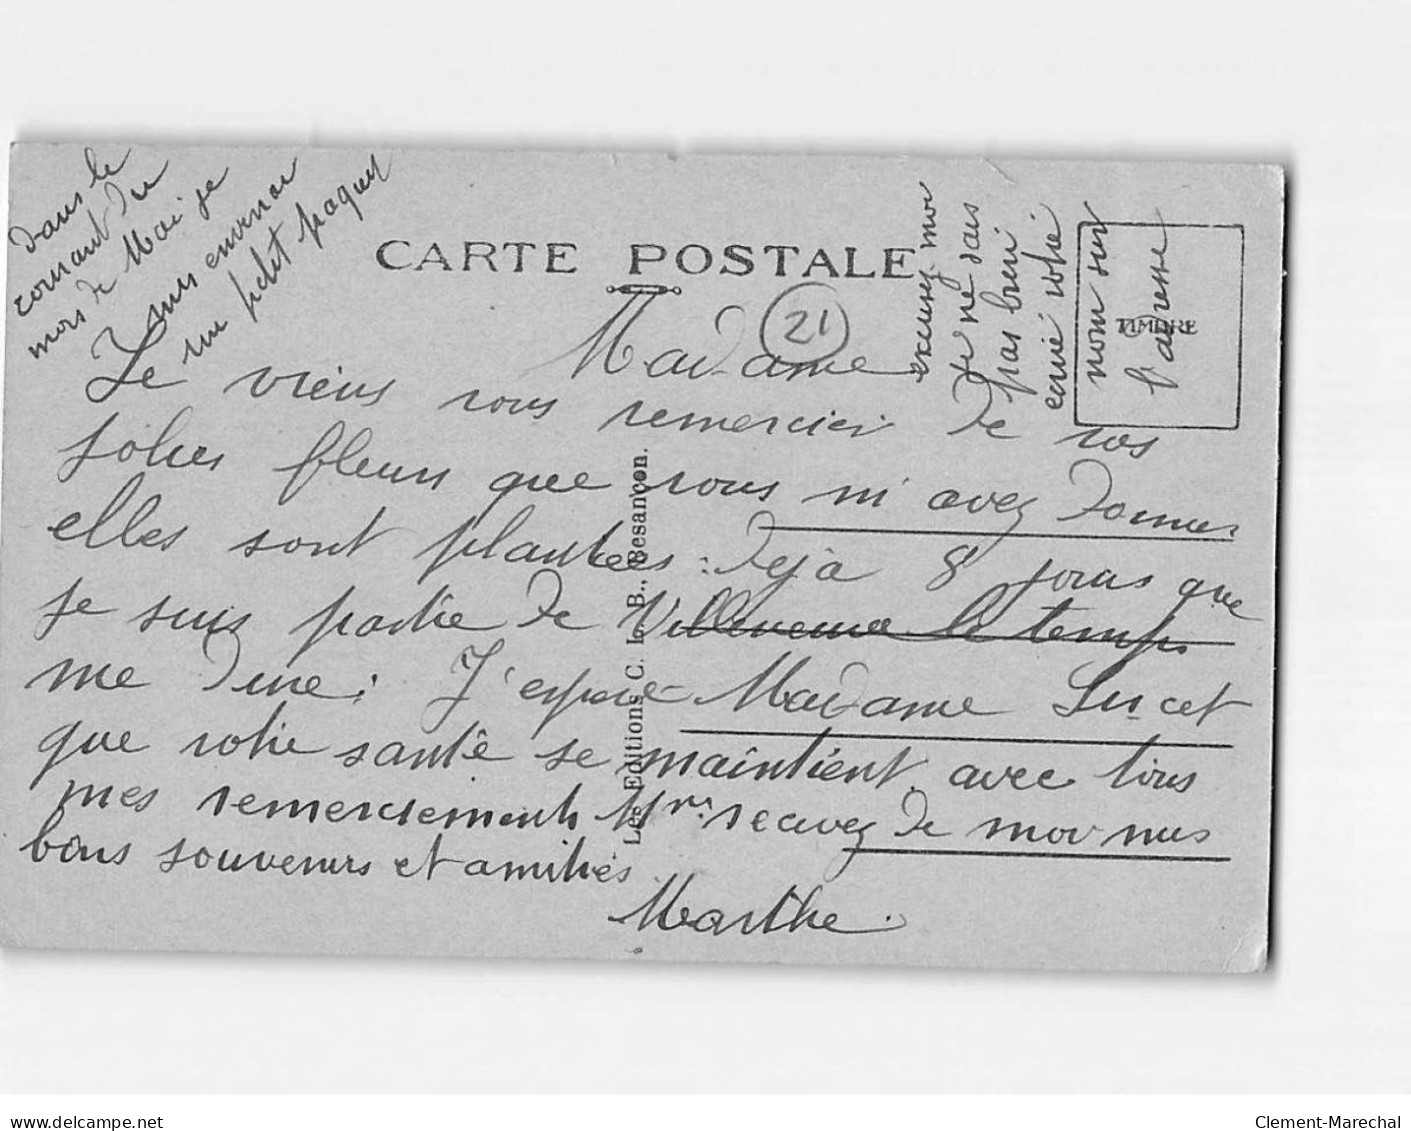 dans le
courant du
mois de Mai je
vous enverrai
un petit paquet
CARTE POSTALE
21
excusez moi
je ne sais
pas bien
ecrie votre
nom sur
l'adresse
TIMBRE
Madame
Je viens vous remercier de vos
jolies fleurs que vous m'avez donnes
elles sont plantées : deja 8 jours que
je suis partie de Villeneuve le temps
me dure : J'espere Madame Lucet
que votre santé se maintient, avec tous
mes remerciements recevez de moi mes
bons souvenirs et amitiés
Marthe.
Les Editions C. L. B., Besançon.
Clement-Marechal